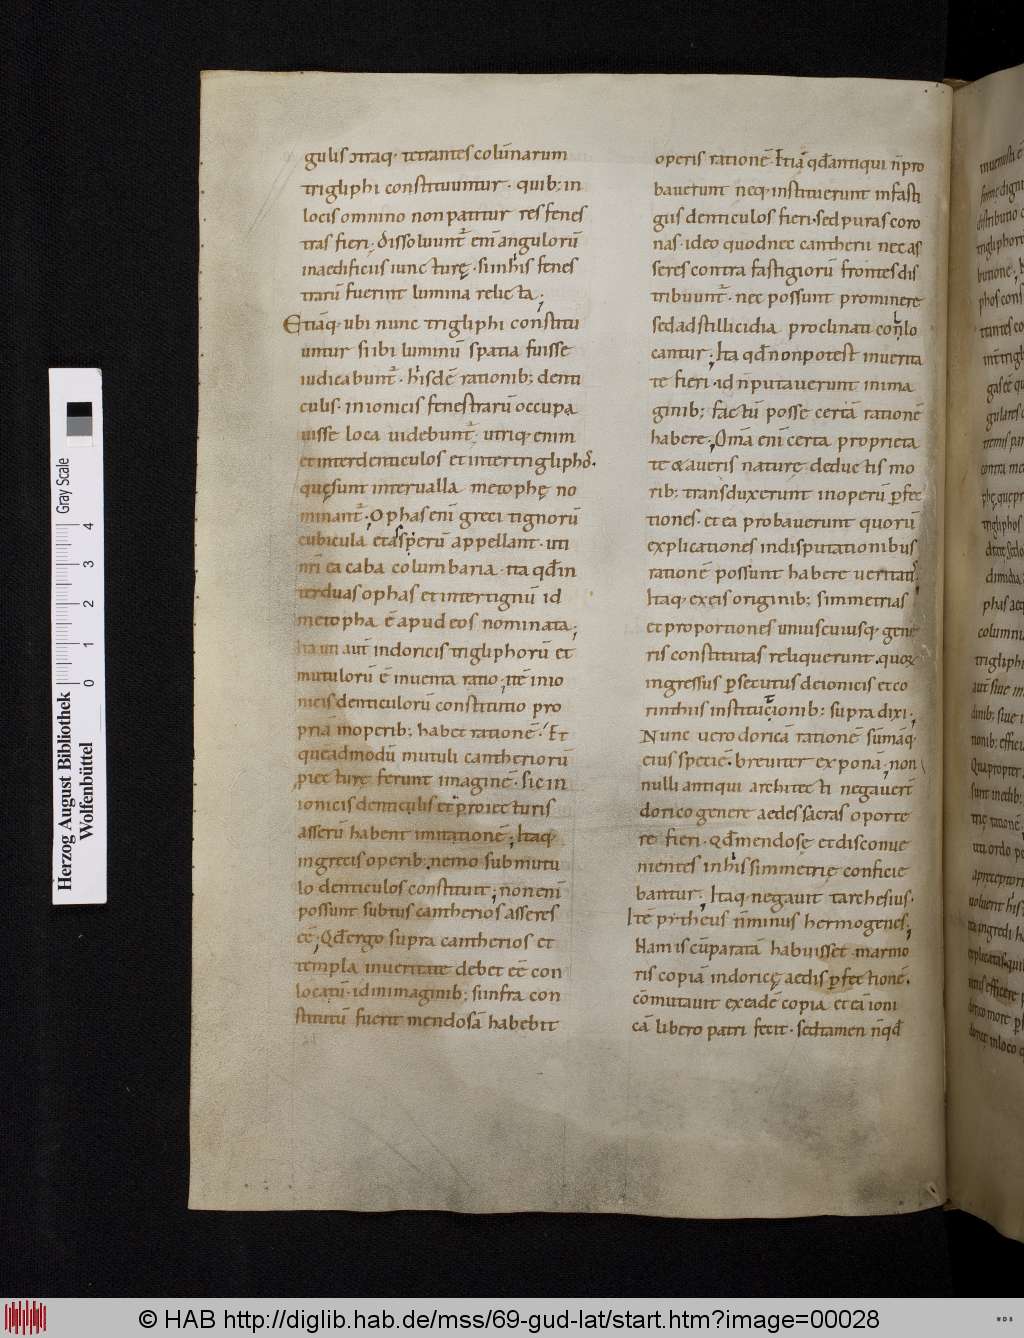 gulis ↄtraq· tetrantes colūnarum
trigliphi constituuntur · quib; in
locis omnino non patitur res fenes
tras fieri; dissoluunt᷑ eni᷑ angulorū
inaedificiis iuncturę · si inhis fenes
trarū fuerint lumina relicta;
Etiāq· ubi nunc trigliphi constitu
untur si ibi luminū spatia fuisse
iudicabunt᷑ · hisdē rationib; denti
culis · inionicis fenestrarū occupa
uisse loca uidebunt᷑ utriq· enim
et interdenticulos et intertrigliphos·
quęsunt interualla metophę no
minant᷑; Ophas enī greci tignorū
cubicula et asserum appellant · uti
nr̄i ea caba columbaria · ita qd̄ in
ter duas ophas et intertignū id
metopha ē apud eos nominata;
Ita uti aut̄ indoricis trigliphorū et
mutulorū ē inuenta ratio; itē inio
nicis denticulorū constitutio pro
priā inoperib; habet rationē · Et
queadmodū mutuli cantheriorū
piecturę ferunt imaginē · sic in
ionicis denticulis et proiecturis
asserū habent imitationē; Itaq·
ingrecis operib; nemo sub mutu
lo denticulos constituit; non enī
possunt subtus cantherios asseres
eē; Qd̄ ergo supra cantherios et
templa inueritate debet eē con
locatū · id inimaginib; si infra con
stitutū fuerit mendosā habebit
operis rationē · Etiā qd̄ antiqui n̄ pro
bauerunt neq· instituerunt infasti
giis denticulos fieri · sed puras coro
nas · ideo quod nec cantherii nec as
seres contra fastigiorū frontes dis
tribuunt᷑ · nec possunt prominere
sed ad stillicidia proclinati conlo
cantur; Ita qd̄ non potest inuerita
te fieri · id n̄ putauerunt inima
ginib; factū posse certā rationē
habere; Om̄a enī certa proprieta
te & aueris naturę deductis mo
rib; transduxerunt inoperū pfec
tiones · et ea probauerunt quorū
explicationes indisputationibus
rationē possunt habere ueritatis;
Itaq· exeis originib; simmetrias
et proportiones uniuscuiusq· gene
ris constitutas reliquerunt · quorum
ingressus psecutus deionicis et co
rinthiis institutionib; supra dixi;
Nunc uero doricā rationē sūmāq·
eius speciē · breuiter exponā; non
nulli antiqui architecti negauert̄
dorico genere aedes sacras oporte
re fieri · qd̄ mendosę et disconue
nientes inhis simmetrię conficie
bantur; Itaq· negauit tarchesius ·
Itē pytheus n̄minus hermogenes;
Nam is cū paratā habuisset marmo
ris copiā indoricę aedis pfectionē ·
cōmutauit exeadē copia et eā ioni
cā libero patri fecit · sed tamen n̄ qd̄
Herzog August Bibliothek
Wolfenbüttel
0 1 2 3 4
Gray Scale
© HAB http://diglib.hab.de/mss/69-gud-lat/start.htm?image=00028